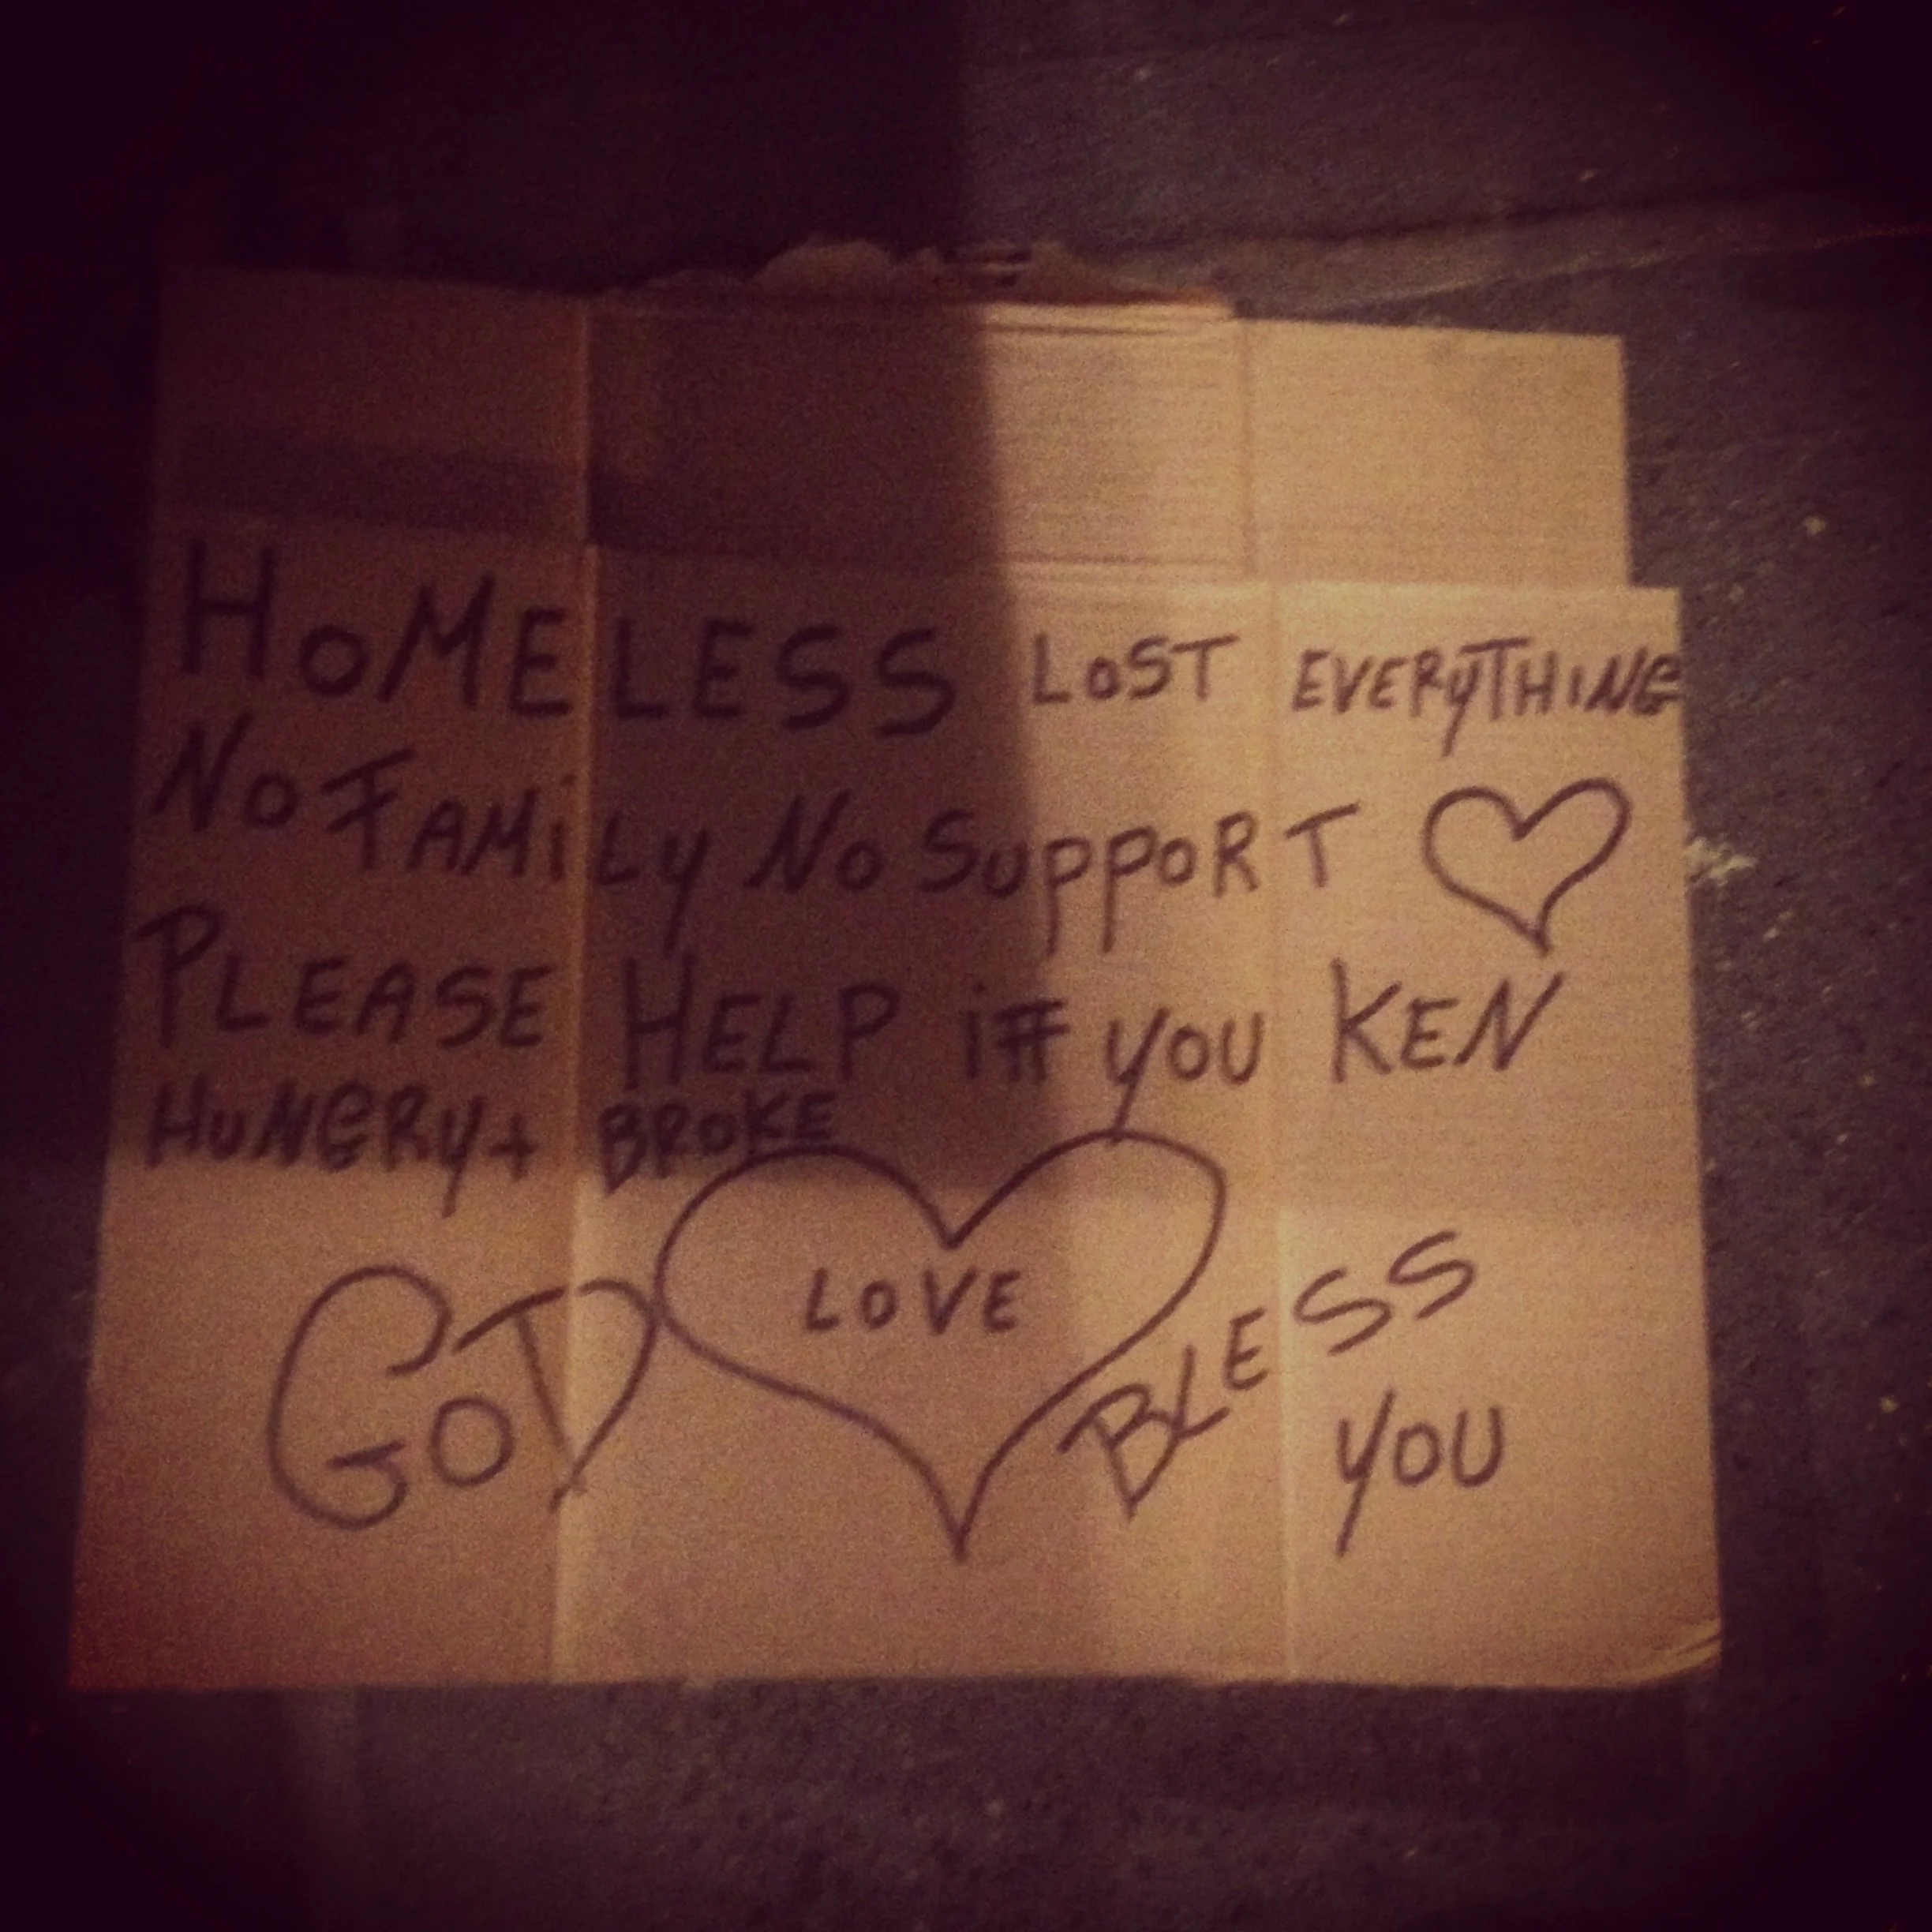 HOMELESS LOST EVERYTHING
NO FAMiLy NO SuppORT
PLEASE HELP iF you KEN
HuNGRy + BROKE
LOVE
GOD BLESS
you